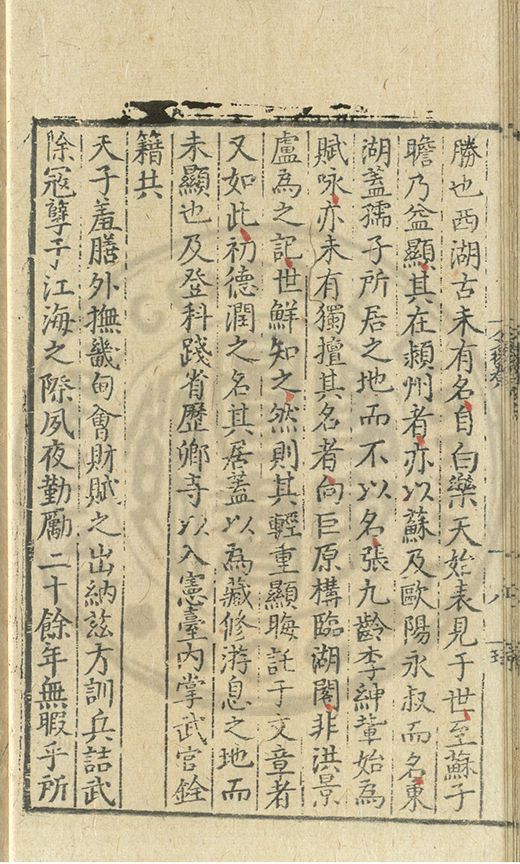 勝也西湖古未有名自白樂天始表見于世至蘇子
瞻乃益顯其在潁州者亦以蘇及歐陽永叔而名東
湖蓋孺子所居之地而不以名張九齡李紳輩始為
賦咏亦未有獨擅其名者向巨原構臨湖閣非洪景
盧為之記世鮮知之然則其輕重顯晦託于文章者
又如此初德潤之名其居蓋以為藏修游息之地而
未顯也及登科踐省歷卿寺以入憲臺內掌武官銓
籍共
天子羞膳外撫畿甸會財賦之出納茲方訓兵詰武
除冦孽于江海之際夙夜勤勵二十餘年無暇乎所